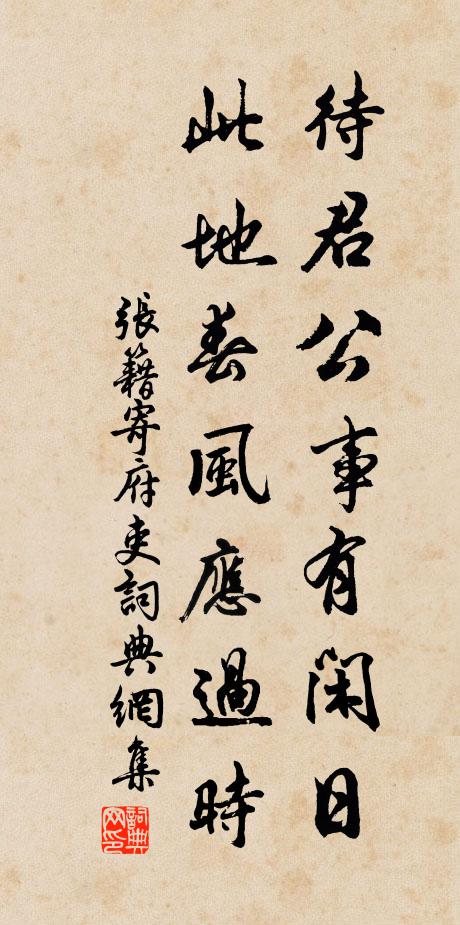 待君公事有闲日
此地春風應過時
張籍寄府吏詞典網集
詞典網印